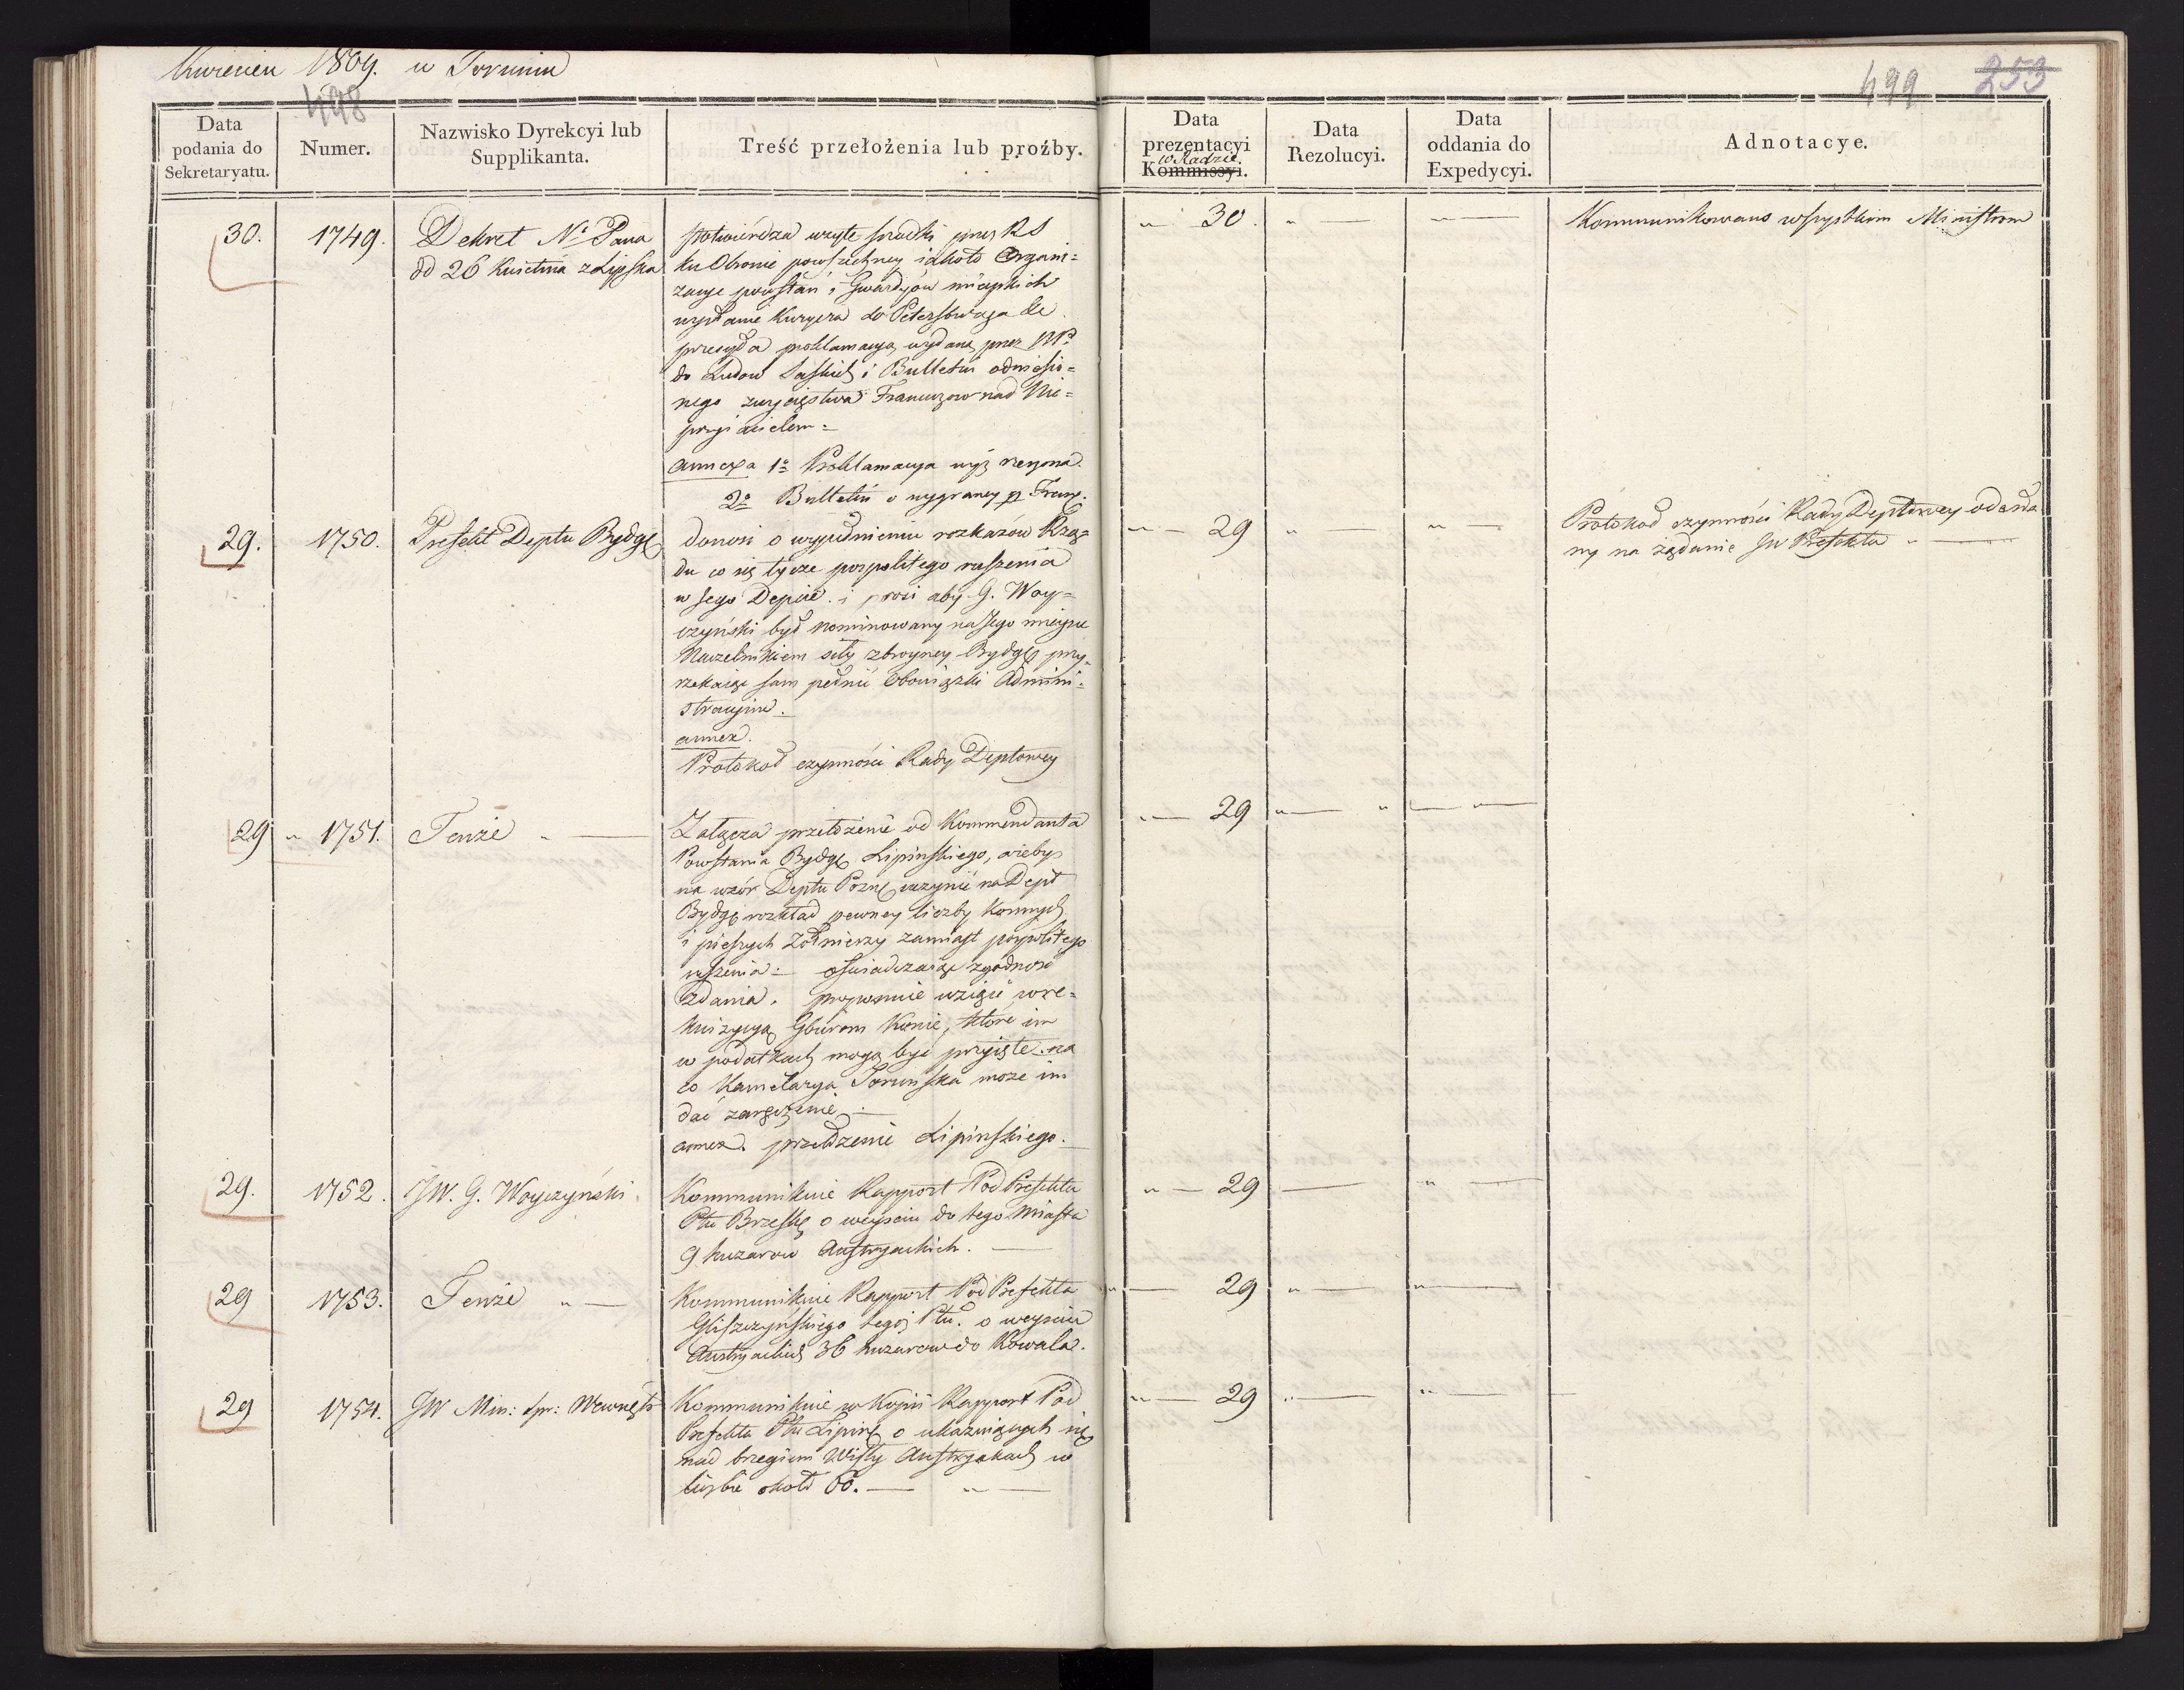 Kwiecień 1809. w Toruniu
498
499 253
Data podania do Sekretaryatu.
Numer.
Nazwisko Dyrekcyi lub Supplikanta.
Treść przełożenia lub prozby.
Data prezentacyi w Radzie Kommissyi.
Data Rezolucyi.
Data oddania do Expedycyi.
Adnotacye.
30. 1749. Dekret Nº Pana
od 26 Kwietnia z Lipska
potwierdza użyte środki przez RS
ku Obronie powszechney iakoto Organi=
zacye powstań i Gwardyów mieyskich
wysłanie Kuryera do Petersburga &c
przesyła proklamacyą wydaną przez NP.
do Ludów Saskich i Bulletin odniesio=
nego zwycięstwa Francuzow nad Nie=
przyiacielem =
annexa 1º Proklamacya wyż rzeczona.
2º Bulletin o wygraney p Franc.
30. Kommunikowano wszystkim Ministrom
29. 1750. Prefekt Deptu Bydg
donosi o wypełnieniu rozkazów Rzą=
du co się tycze pospolitego ruszenia
w Jego Depcie. i prosi aby G. Woy=
czyński był nominowany na Jego mieysce
Naczelnikiem siły zbroyney Bydg przy=
rzekaiąc sam pełnić Obowiązki Admini=
stracyine.
annex.
Protokoł czynności Rady Deptowey
29
Protokoł czynności Rady Deptowey odesła
ny na żądanie JW Prefekta
29 1751. Tenże
Załącza przełożenie od Kommendanta
Powstania Bydg Lipinskiego, ażeby
na wzór Deptu Pozn uczynić na Dept
Bydg rozkład pewney liczby konnych
i pieszych Żołnierzy zamiast pospolitego
ruszenia = oświadczaiąc zgodność
zdania. wziąść w re=
kwizycyą Gburom Konie, które im
w podatkach mogą być przyięte. na
co Kamelarya Torunska może im
dać zaręczenie.
annex. przełożenie Lipinskiego.
29
29. 1752. JW. G. Woyczyński.
Kommunikuie Rapport Pod Prefekta
Ptu Brzesk o weyściu do tego Miasta
9 huzarow Austryackich.
29
29 1753. Tenże
Kommunikuie Rapport Pod Prefekta
Gliszczyńskiego tegoż Ptu. o weyściu
Austryackich 36 huzarow do Kowala.
29
29 1754. JW Min: Spr: Wewnętr
Kommunikuie w Kopii Rapport Pod
Prefekta Ptu Lipin o ukazuiących się
nad brzegiem Wisły Austryakach w
liczbie około 60.
29